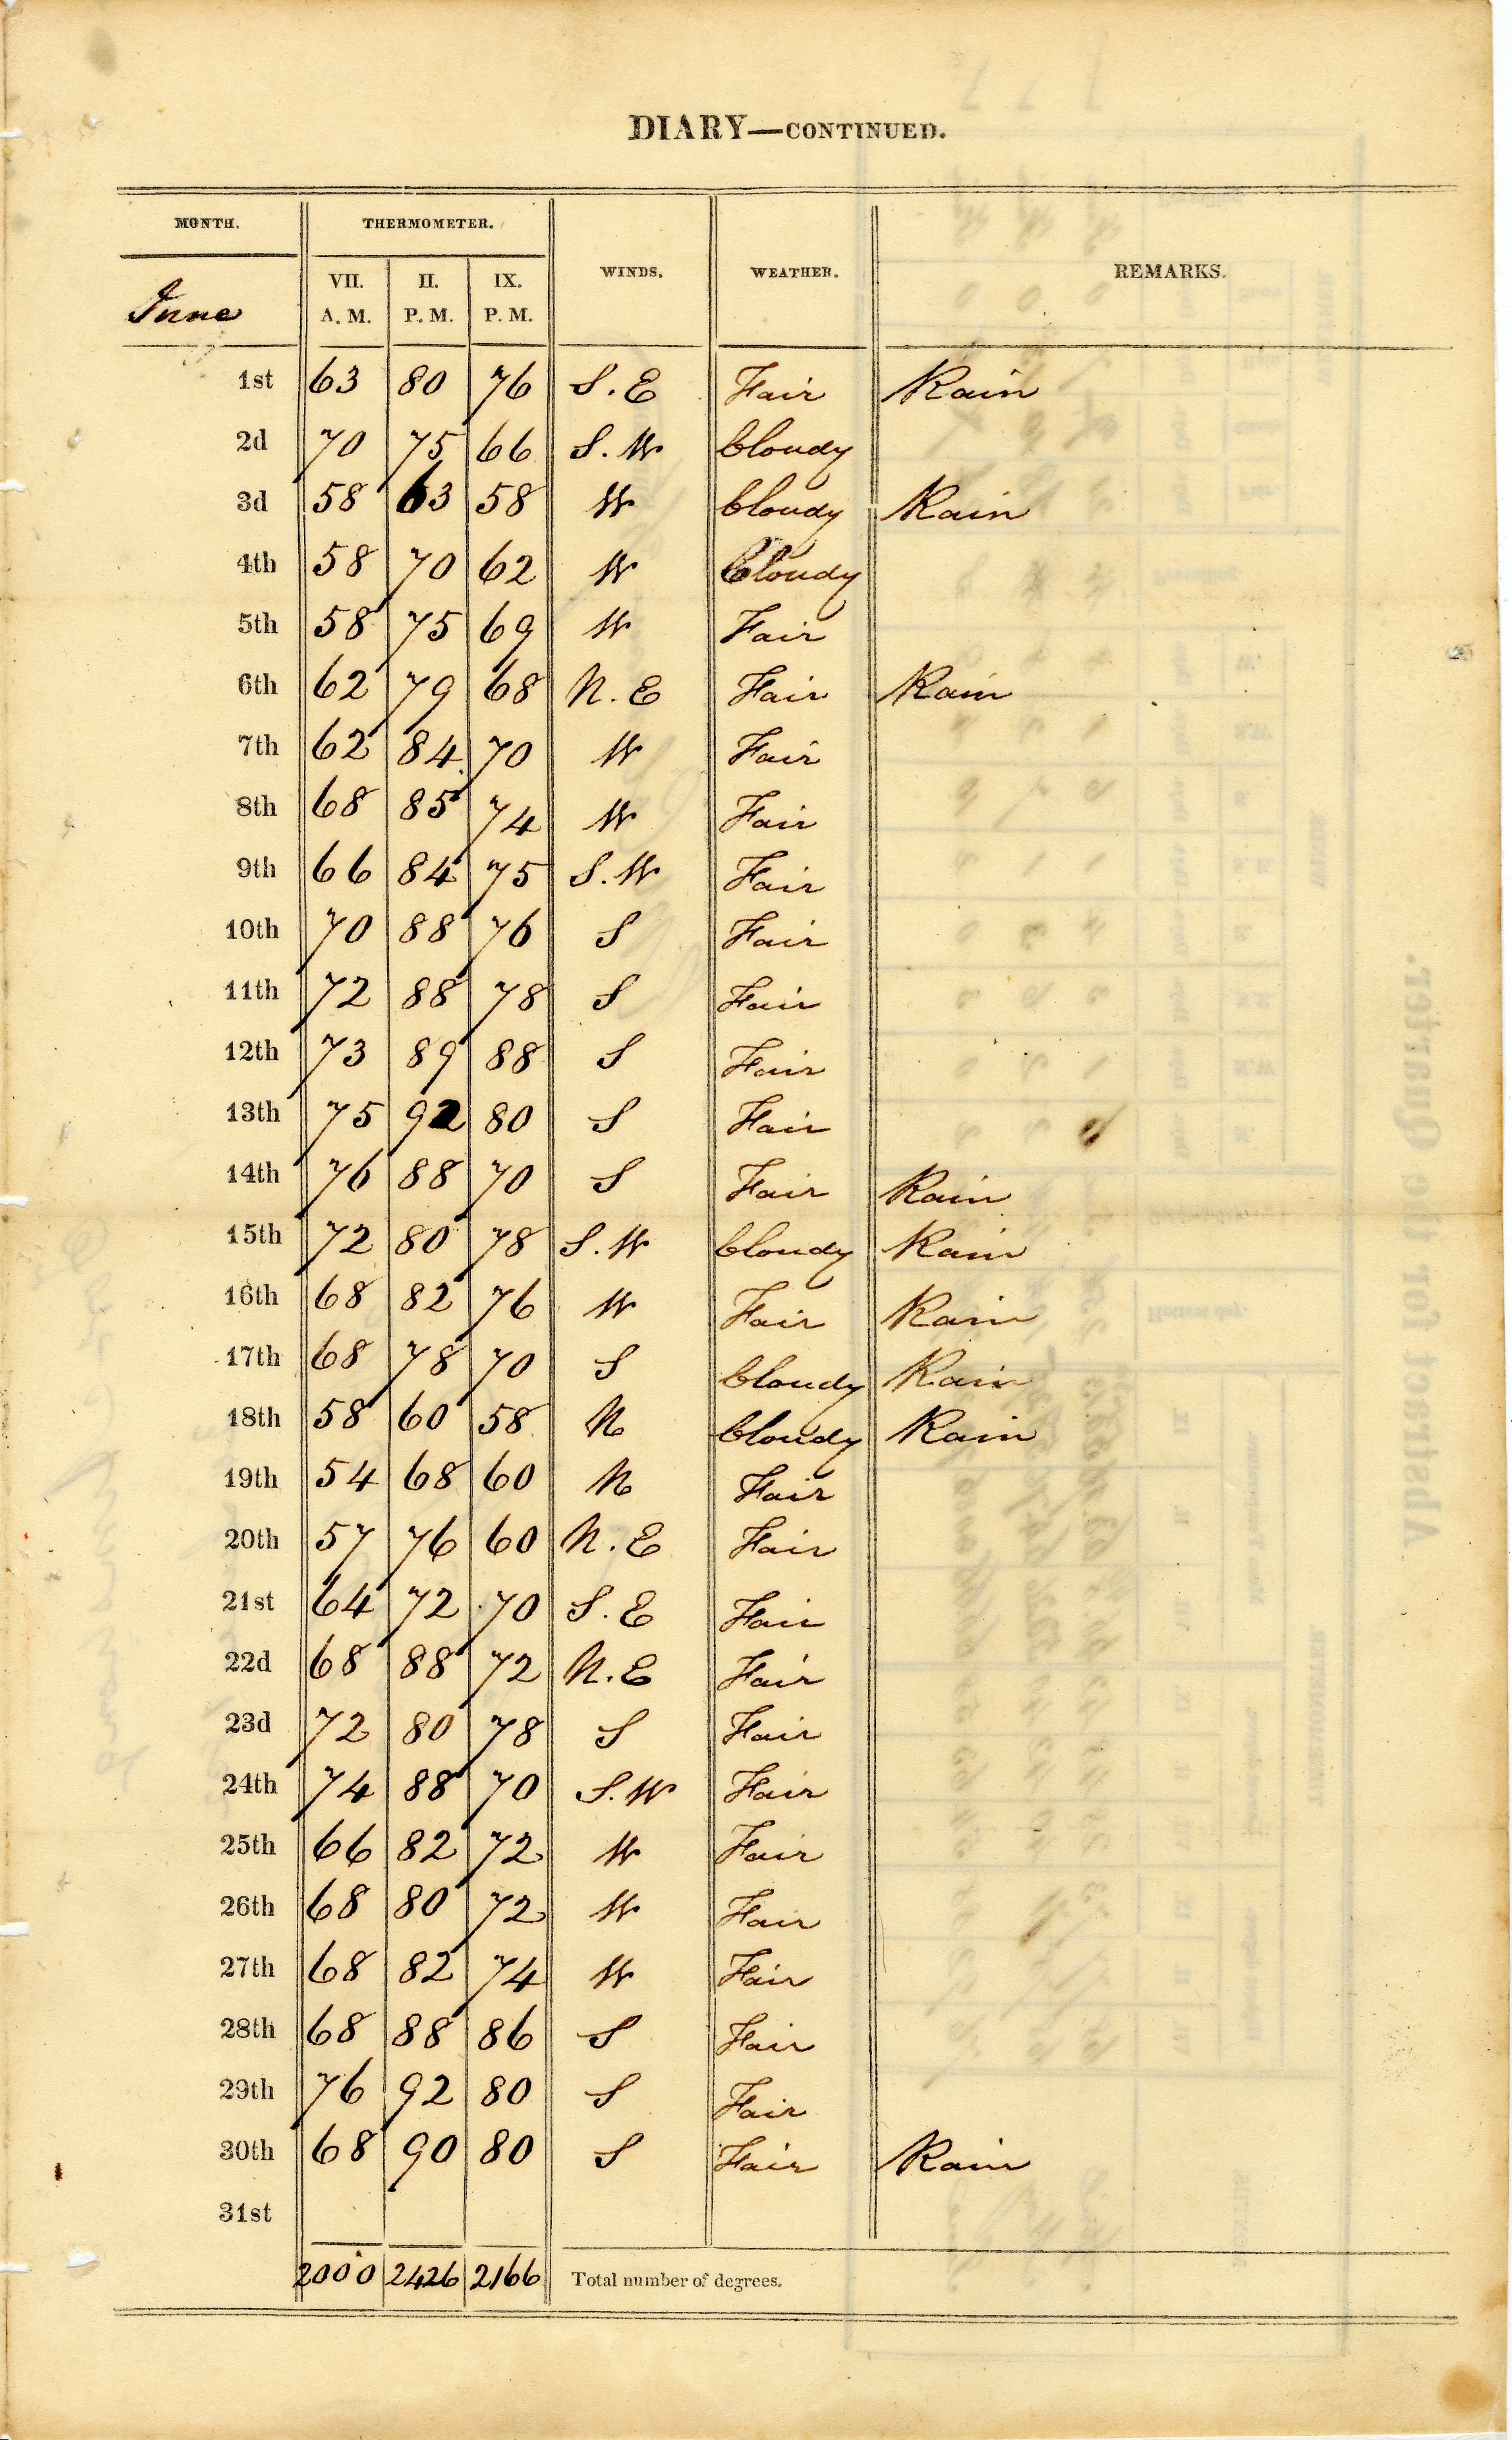 DIARY—CONTINUED.
MONTH. THERMOMETER. WINDS. WEATHER. REMARKS.
June VII. A. M. II. P. M. IX. P. M.
1st 63 80 76 S. E Fair Rain
2d 70 75 66 S. W Cloudy
3d 58 63 58 W Cloudy Rain
4th 58 70 62 W Cloudy
5th 58 75 69 W Fair
6th 62 79 68 N. E Fair Rain
7th 62 84 70 W Fair
8th 68 85 74 W Fair
9th 66 84 75 S. W Fair
10th 70 88 76 S Fair
11th 72 88 78 S Fair
12th 73 89 88 S Fair
13th 75 92 80 S Fair
14th 76 88 70 S Fair Rain
15th 72 80 78 S. W Cloudy Rain
16th 68 82 76 W Fair Rain
17th 68 78 70 S Cloudy Rain
18th 58 60 58 N Cloudy Rain
19th 54 68 60 N Fair
20th 57 76 60 N. E Fair
21st 64 72 70 S. E Fair
22d 68 88 72 N. E Fair
23d 72 80 78 S Fair
24th 74 88 70 S. W Fair
25th 66 82 72 W Fair
26th 68 80 72 W Fair
27th 68 82 74 W Fair
28th 68 88 86 S Fair
29th 76 92 80 S Fair
30th 68 90 80 S Fair Rain
31st
2000 2426 2166 Total number of degrees.